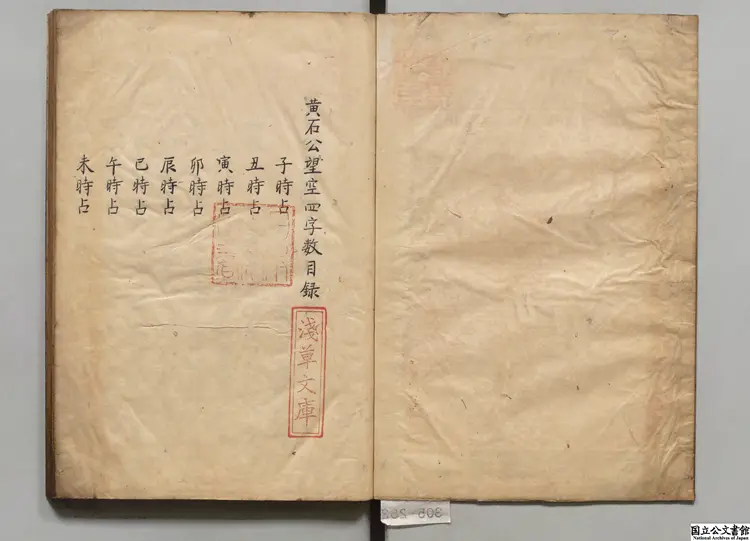 黄石公望空四字数目録
子時占
丑時占
寅時占
卯時占
辰時占
巳時占
午時占
未時占
淺草文庫
305-262
国立公文書館
National Archives of Japan